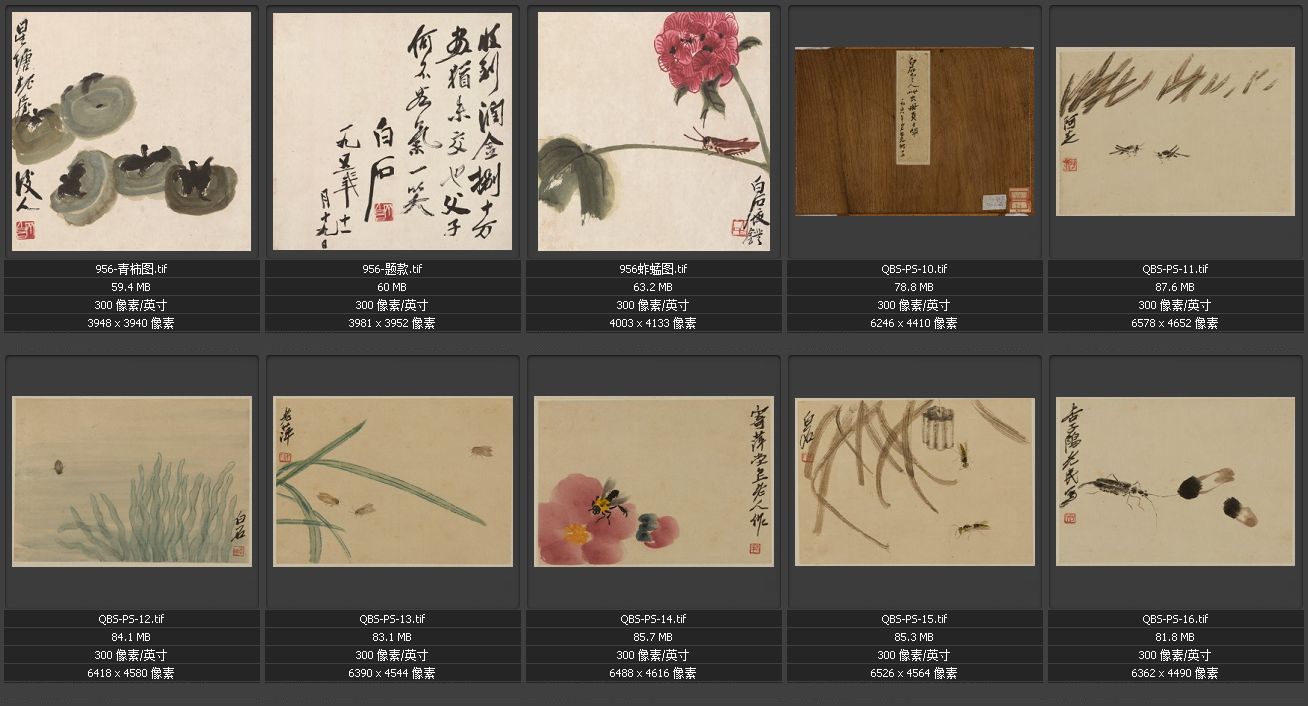 星塘老屋
後人
收到潤金捌十万
畫猶未交也父子
何不客氣一笑
白石
一九五三年十一
月十九日
白石夜鐙
阿芝
956-青柿图.tif
59.4 MB
300 像素/英寸
3948 x 3940 像素
956-题款.tif
60 MB
300 像素/英寸
3981 x 3952 像素
956蚱蜢图.tif
63.2 MB
300 像素/英寸
4003 x 4133 像素
QBS-PS-10.tif
78.8 MB
300 像素/英寸
6246 x 4410 像素
QBS-PS-11.tif
87.6 MB
300 像素/英寸
6578 x 4652 像素
白石
老萍
寄萍堂上老人作
白石
杏子隝老民寫
QBS-PS-12.tif
84.1 MB
300 像素/英寸
6418 x 4580 像素
QBS-PS-13.tif
83.1 MB
300 像素/英寸
6390 x 4544 像素
QBS-PS-14.tif
85.7 MB
300 像素/英寸
6488 x 4616 像素
QBS-PS-15.tif
85.3 MB
300 像素/英寸
6526 x 4564 像素
QBS-PS-16.tif
81.8 MB
300 像素/英寸
6362 x 4490 像素